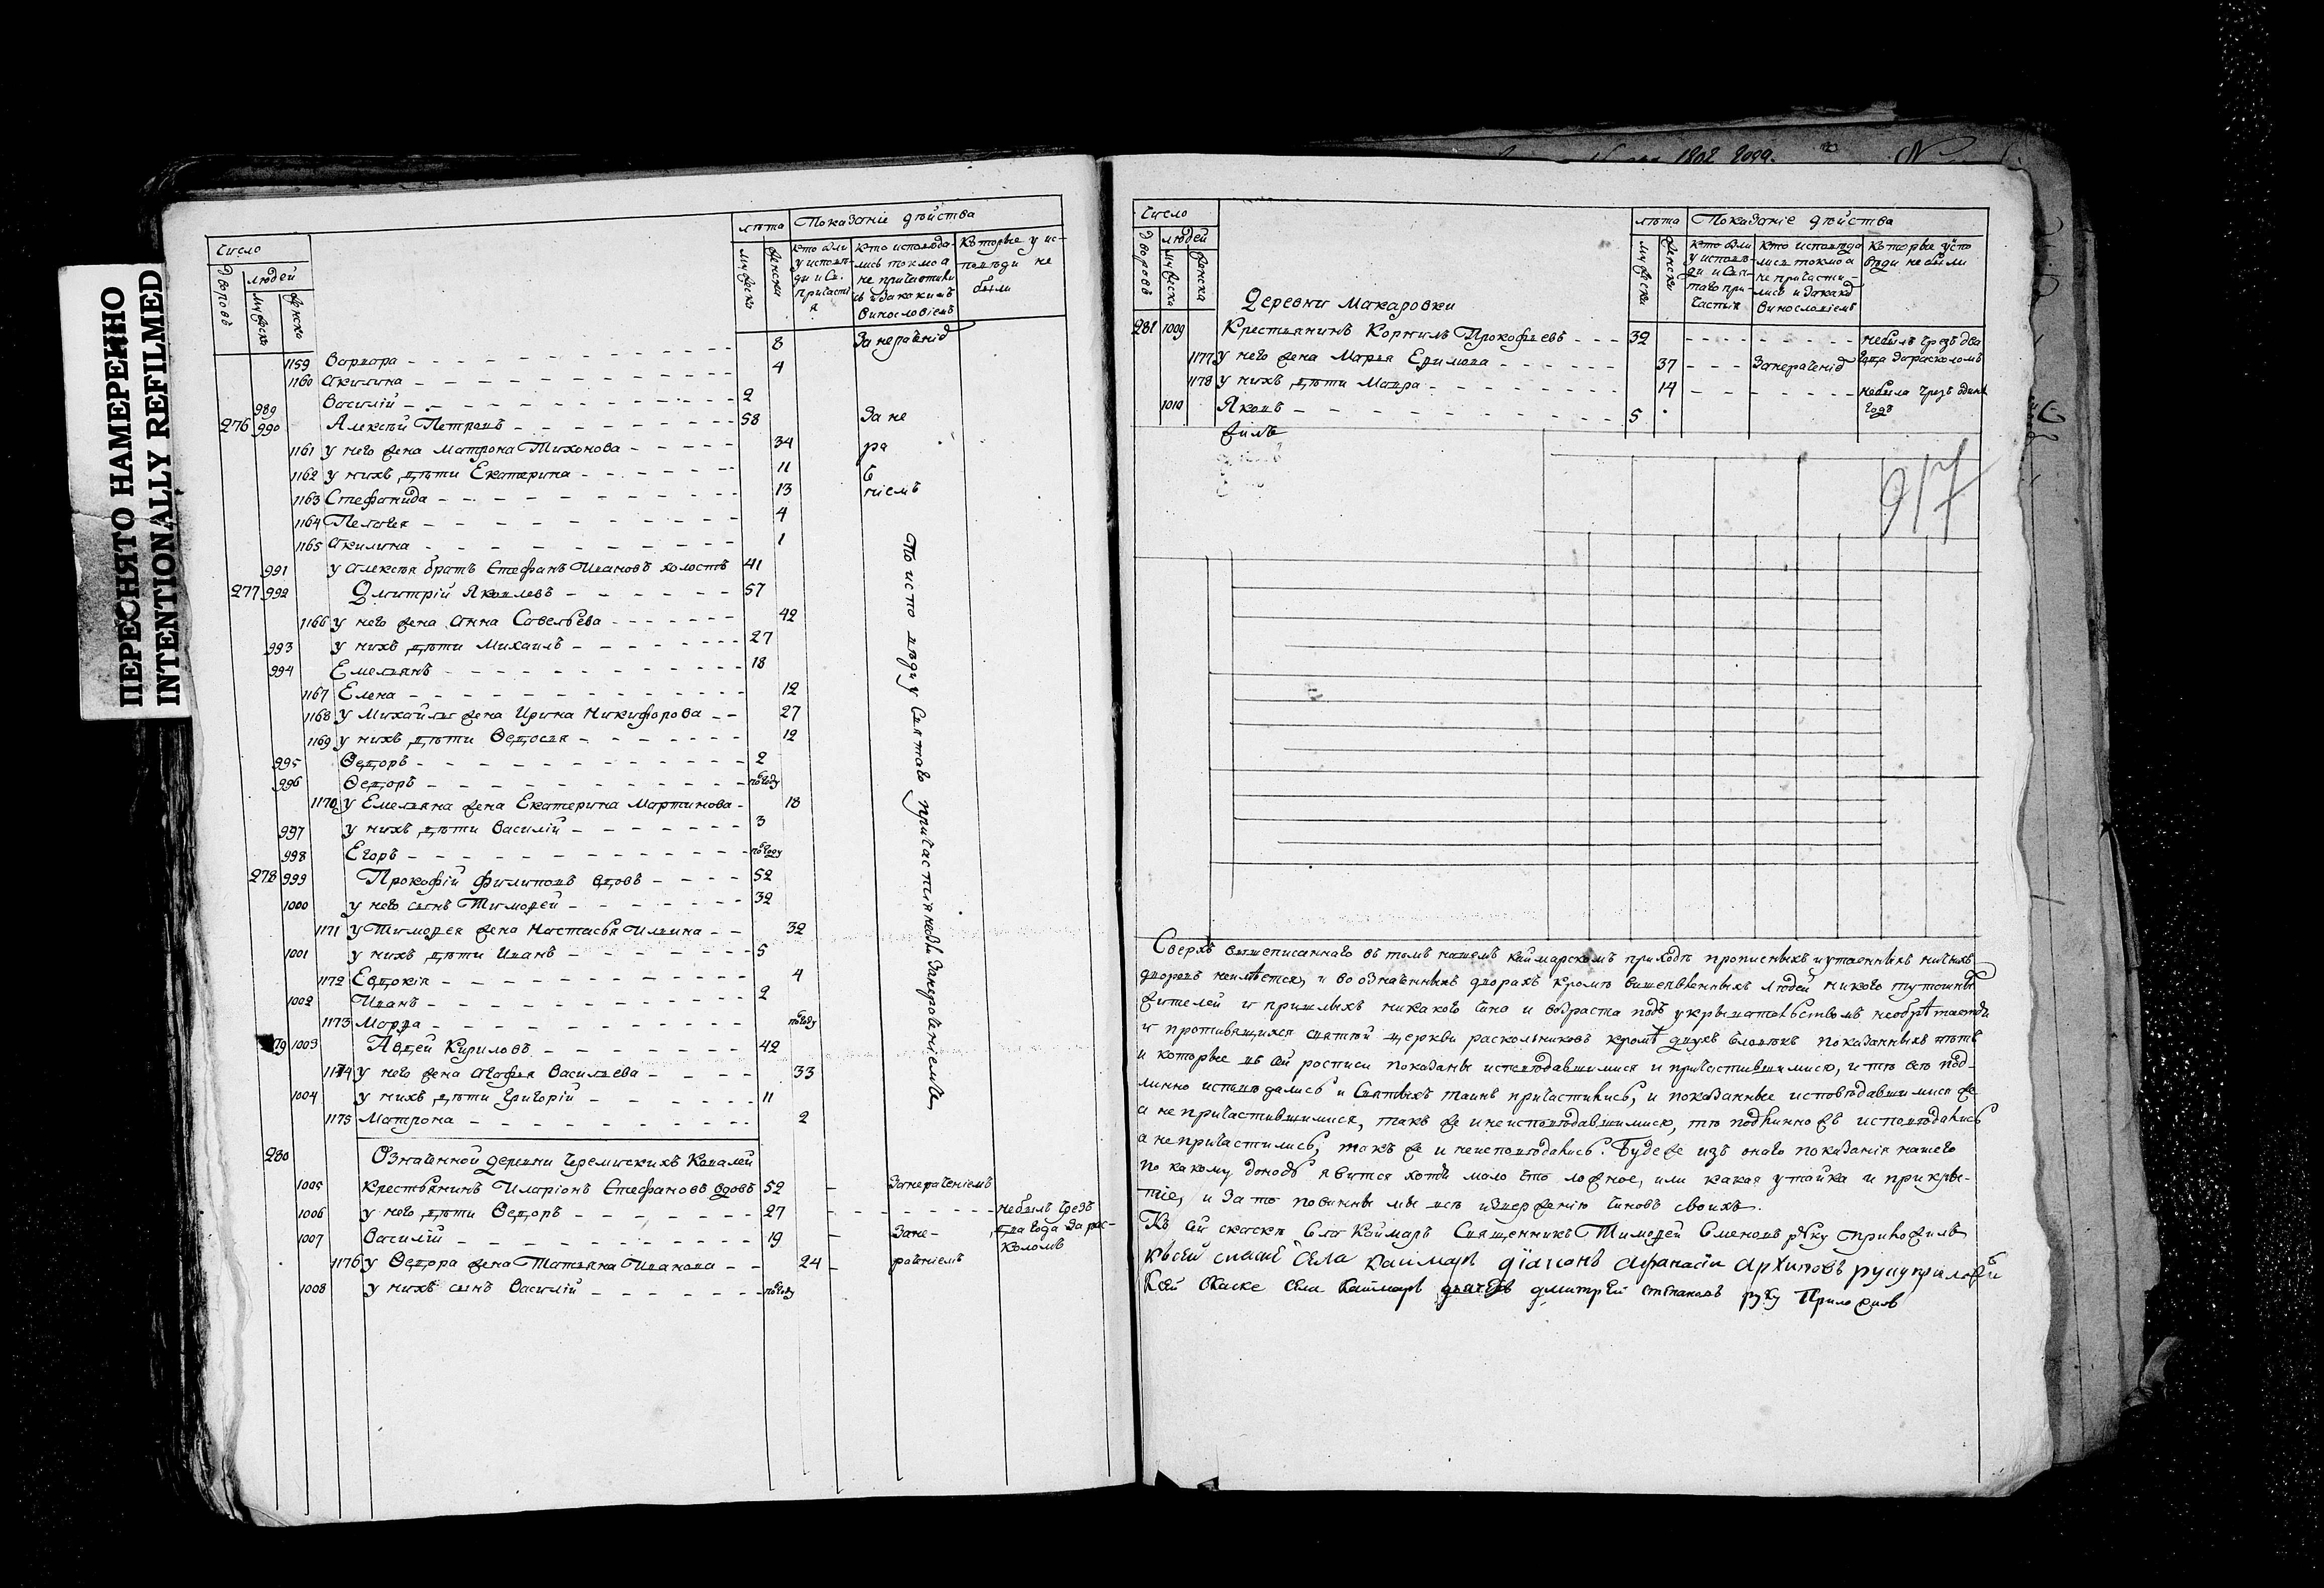 ПЕРЕСНЯТО НАМЕРЕННО
INTENTIONALLY REFILMED
Число лѣта Показаніе дѣйства
Дворовъ людей мужеска женски кто были у исповѣди и Св. причастія кто исповѣдались токмо а не причастились и за какимъ винословіемъ Которые у исповѣди не были
мужескъ женска
1159 Варвара 8 За нераченіе
1160 Акилина 4
989 Василій 2
276 990 Алексѣй Петровъ 58 За не
1161 у него жена Матрона Тихонова 34 ра
1162 у нихъ дѣти Екатерина 11 че
1163 Стефанида 13 ніемъ
1164 Пелагея 4
1165 Акилина 1
991 у Алексѣя братъ Стефанъ Ивановъ холостъ 41
277 992 Дмитрій Яковлевъ 57
1166 у него жена Анна Савельева 42
993 у нихъ дѣти Михаилъ 27
994 Емельянъ 18
1167 Елена 12
1168 у Михайлы жена Ирина Никифорова 27
1169 у нихъ дѣти Ѳедосья 12
995 Ѳедоръ 2
996 Ѳедоръ полгоду
1170 у Емельяна жена Екатерина Мартинова 18
997 у нихъ дѣти Василій 3
998 Егоръ полгоду
278 999 Прокофій Филиповъ вдовъ 52
1000 у него сынъ Тимофей 32
1171 у Тимофея жена Настасья Ильина 32
1001 у нихъ дѣти Иванъ 5
1172 Евдокія 4
1002 Иванъ 2
1173 Марфа полгоду
79 1003 Авдей Кириловъ 42
1174 у него жена Агафья Васильева 33
1004 у нихъ дѣти Григорій 11
1175 Матрона 2
280 Означенной деревни Черемискихъ Ковалей
1005 Крестьянинъ Иларіонъ Стефановъ вдовъ 52 Занераченіемъ
1006 у него дѣти Ѳедоръ 27 небылъ чрезъ
1007 Василій 19 Зане- два года за рас-
1176 у Ѳедора жена Татьяна Иванова 24 раченіемъ коломъ
1008 у нихъ сынъ Василій полгоду
То исповѣди у Святаго причастія не
1802 года.
Число лѣта Показаніе дѣйства
Дворовъ людей мужеска женски кто были у исповѣди и Святаго причастія кто исповѣдались токмо а не причастились и за какимъ винословіемъ Которые у исповѣди не были
мужеска женска
Деревни Макаровки
281 1009 Крестьянинъ Корнилъ Прокофьевъ 32 небылъ чрезъ два
1177 у него жена Марья Ефимова 37 Занераченіе года за расколомъ
1178 у нихъ дѣти Мавра 14 небыла чрезъ одинъ
1010 Яковъ 5 годъ
917
Сверхъ вышеписаннаго въ томъ нашемъ каймарскомъ приходѣ прописныхъ и утаенныхъ ничьихъ
дворовъ неимѣется, и во означенныхъ дворахъ кромѣ вышеявленныхъ людей никого тутошныхъ
жителей и пришлыхъ никакого чина и возраста подъ укрывательствомъ необрѣтается
и противящихся святѣй церкви раскольниковъ кромѣ двухъ человѣкъ показанныхъ нѣтъ
и которые въ сей росписи показаны исповѣдавшимися и причастившимися, и тѣ все под-
линно исповѣдались и Святыхъ таинъ причастились, и показанные исповѣдавшимися же
а не причастившимися, такъ же и неисповѣдавшимися, тѣ подлинно жъ исповѣдались
а не причастились, такъ же и неисповѣдались. Буде же изъ онаго показанія нашего
по какому доносу явится хотя мало что ложное, или какая утайка и прикры-
тіе, и за то повинны мы изверженію чиновъ своихъ.
Къ сей сказкѣ села Каймаръ Священникъ Тимофей Семеновъ руку приложилъ
села каймаръ діаконъ афанасій архиповъ руку приложилъ
Ксей скаске села каймаръ дмитрей степановъ руку приложилъ